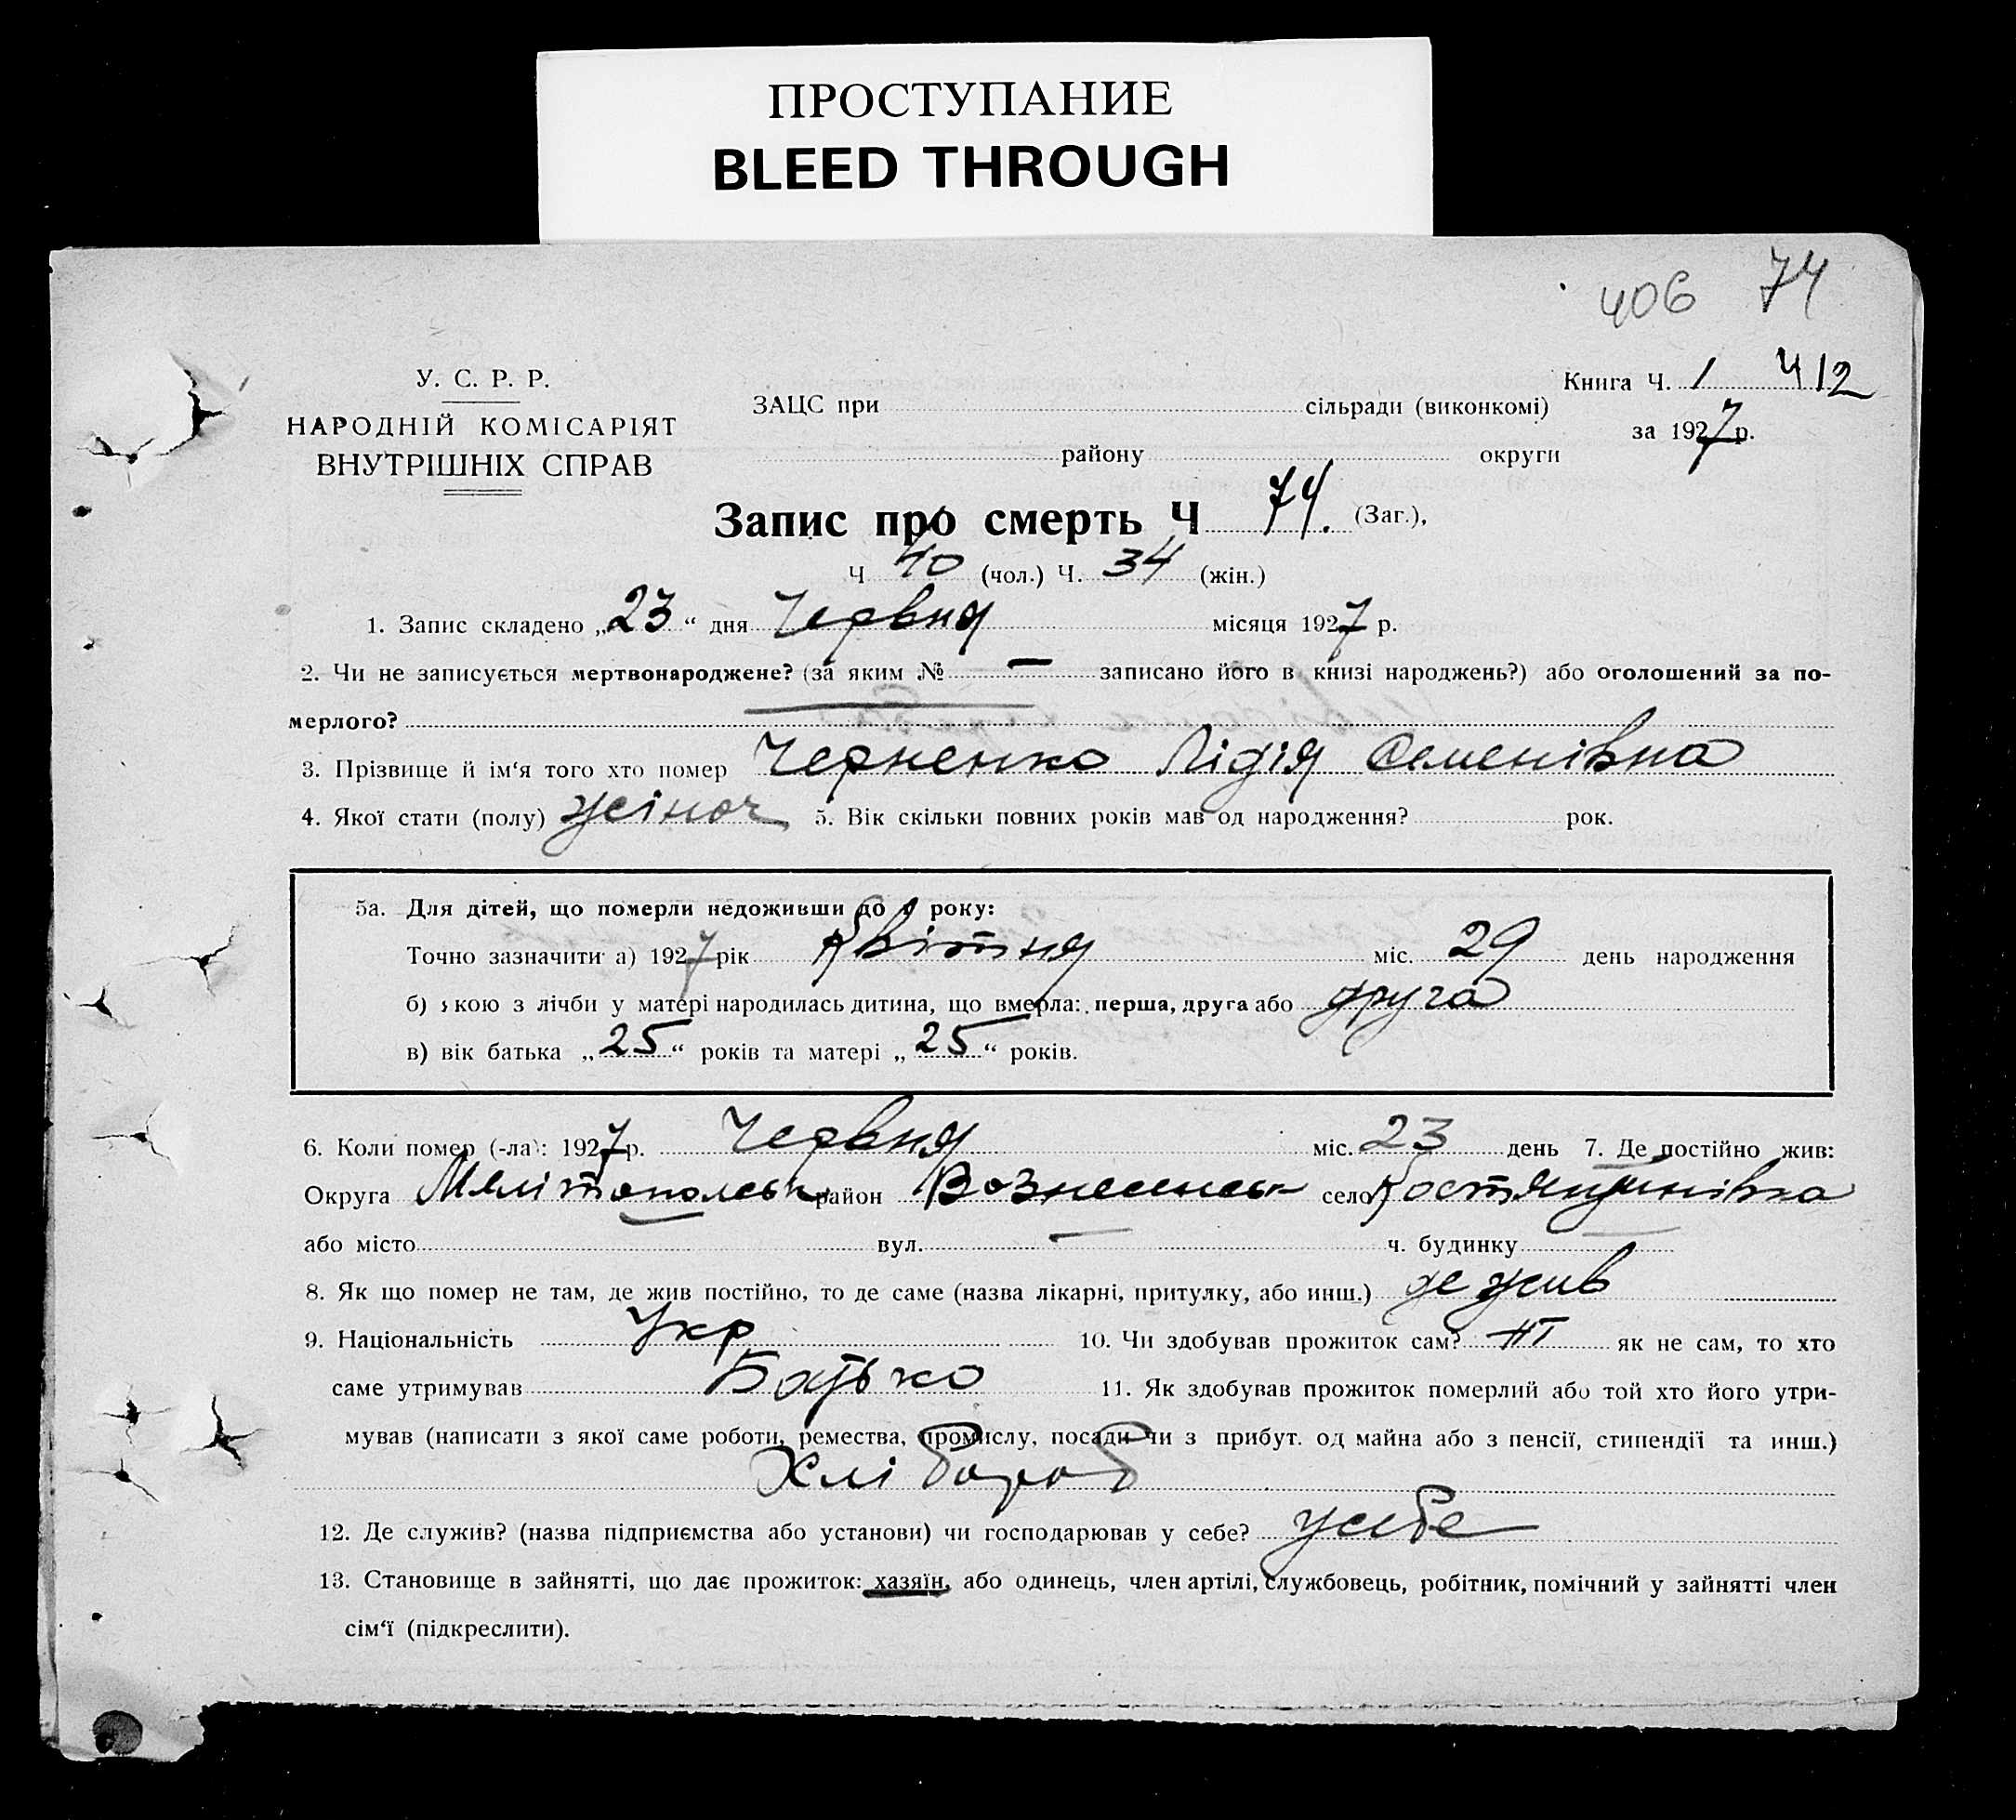 ПРОСТУПАНИЕ
BLEED THROUGH
406 74
У. С. Р. Р.
НАРОДНІЙ КОМІСАРІЯТ
ВНУТРІШНІХ СПРАВ
Книга Ч. 1 412
ЗАЦС при сільради (виконкомі)
за 1927 р.
району округи
Запис про смерть Ч 74. (Заг.),
Ч 40 (чол.) Ч. 34 (жін.)
1. Запис складено „23“ дня Червня місяця 1927 р.
2. Чи не записується мертвонароджене? (за яким № — записано його в книзі народжень?) або оголошений за по-
мерлого?
3. Прізвище й ім‘я того хто помер Черненко Лідія Семенівна
4. Якої стати (полу) жіноч 5. Вік скільки повних років мав од народження? рок.
5а. Для дітей, що померли недоживши до 1 року:
Точно зазначити а) 1927 рік Квітня міс. 29 день народження
б) якою з лічби у матері народилась дитина, що вмерла: перша, друга або друга
в) вік батька „25“ років та матері „25“ років.
6. Коли помер (-ла): 1927 р. Червня міс. 23 день 7. Де постійно жив:
Округа Мелітопольськ район Вознесенськ село Костянтинівка
або місто вул. — ч. будинку —
8. Як що помер не там, де жив постійно, то де саме (назва лікарні, притулку, або инш.) де жив
9. Національність Укр 10. Чи здобував прожиток сам? ні як не сам, то хто
саме утримував Батько 11. Як здобував прожиток померлий або той хто його утри-
мував (написати з якої саме роботи, ремества, промислу, посади чи з прибут. од майна або з пенсії, стипендії та инш.)
Хлібороб
12. Де служив? (назва підприємства або установи) чи господарював у себе? у себе
13. Становище в зайнятті, що дає прожиток: хазяїн, або одинець, член артілі, службовець, робітник, помічний у зайнятті член
сім‘ї (підкреслити).